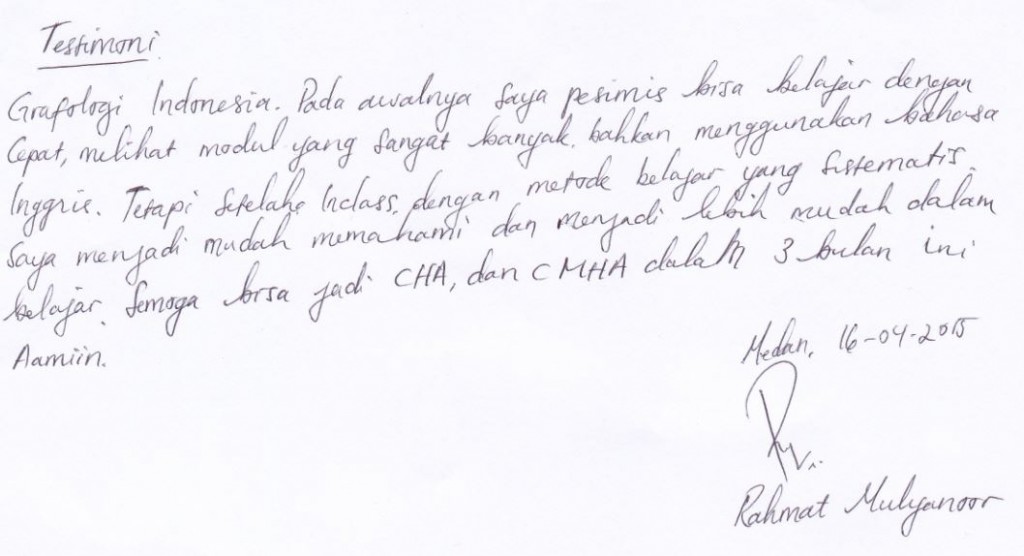 Testimoni.
Grafologi Indonesia. Pada awalnya saya pesimis bisa belajar dengan
Cepat, melihat modul yang sangat banyak. bahkan menggunakan bahasa
Inggris. Tetapi setelah Inclass, dengan metode belajar yang sistematis.
Saya menjadi mudah memahami dan menjadi lebih mudah dalam
belajar. Semoga bisa jadi CHA, dan CMHA dalam 3 bulan ini
Aamiin.
Medan, 16-04-2015
Rahmat Mulyanoor